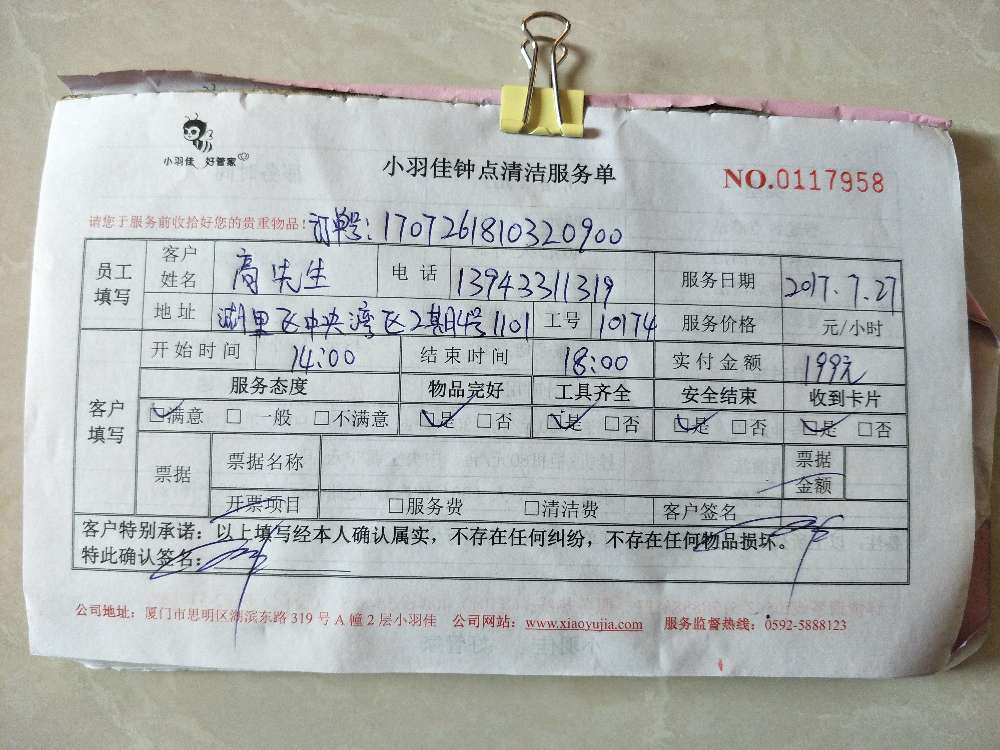 小羽佳 好管家
小羽佳钟点清洁服务单
NO.0117958
请您于服务前收拾好您的贵重物品! 订单号:1707261810320900
员工填写 客户姓名 高先生 电话 13943311319 服务日期 2017.7.27
地址 湖里区中央湾区2期14号1101 工号 10174 服务价格 元/小时
开始时间 14:00 结束时间 18:00 实付金额 199元
客户填写 服务态度 物品完好 工具齐全 安全结束 收到卡片
☑满意 □一般 □不满意 ☑是 □否 ☑是 □否 ☑是 □否 ☑是 □否
票据 票据名称 票据金额
开票项目 □服务费 □清洁费 客户签名
客户特别承诺:以上填写经本人确认属实,不存在任何纠纷,不存在任何物品损坏。
特此确认签名:
公司地址:厦门市思明区湖滨东路319号A幢2层小羽佳 公司网站:www.xiaoyujia.com 服务监督热线:0592-5888123